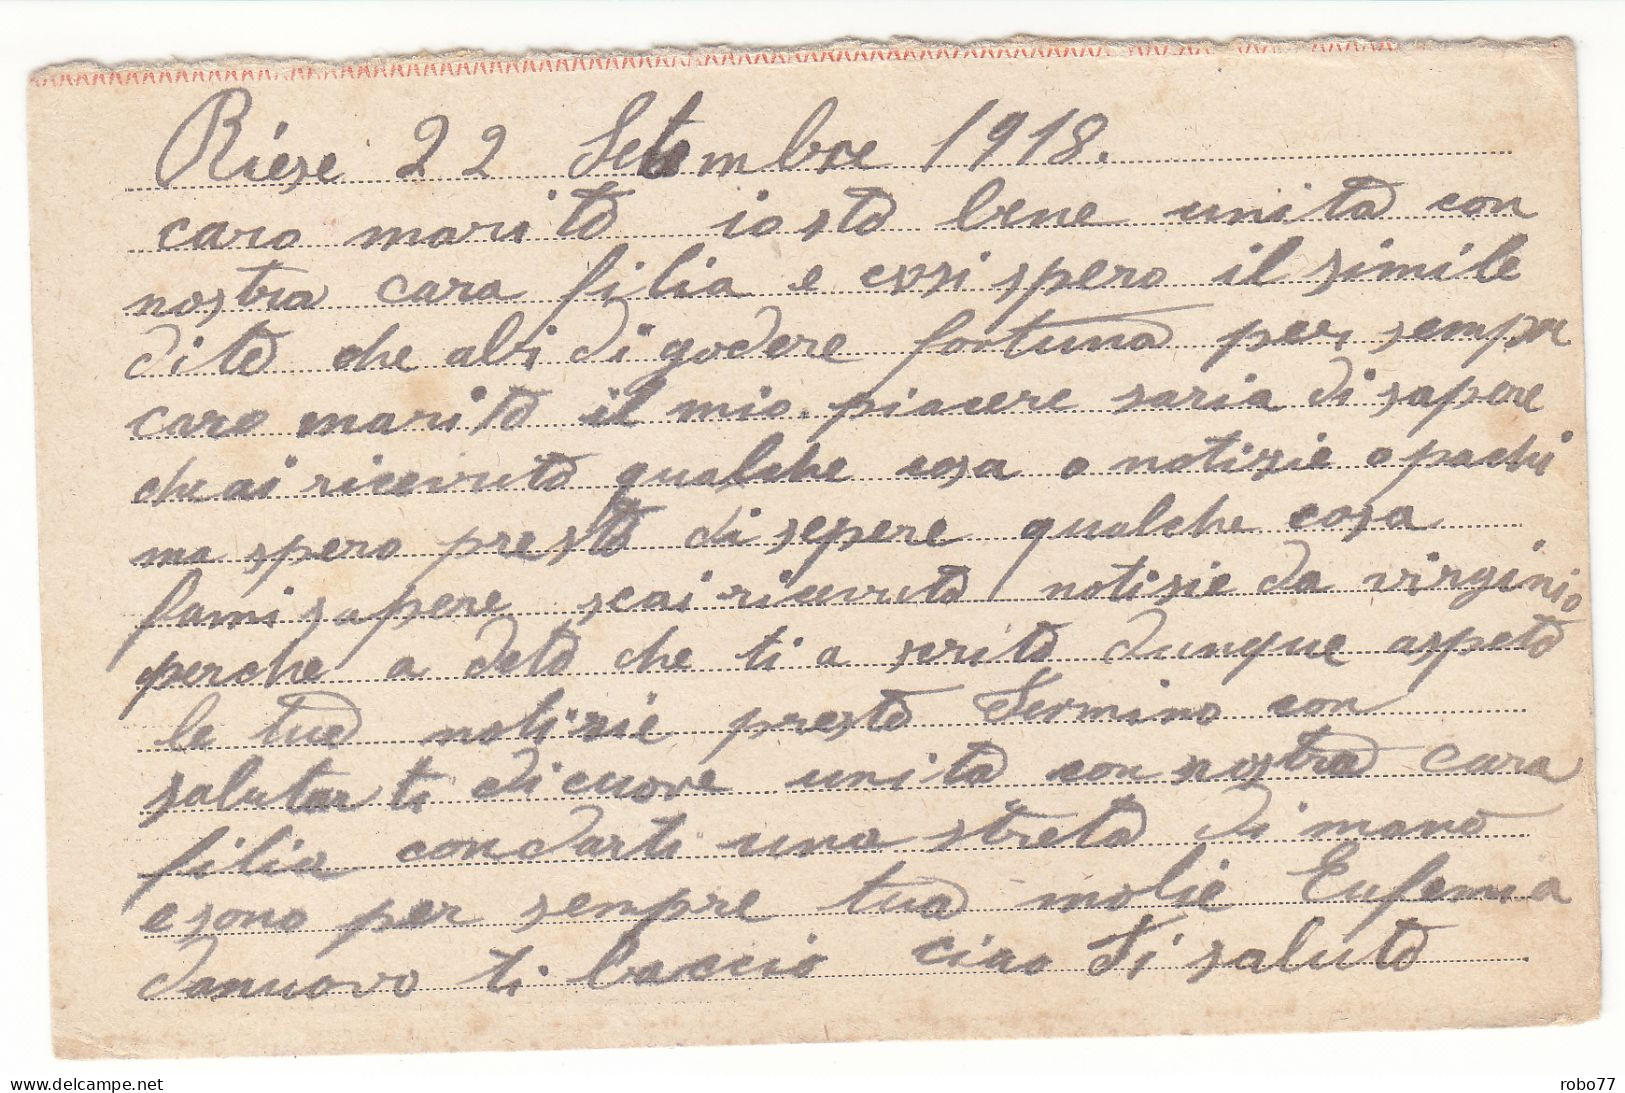 Riese 22 Setembre 1918.
caro marito io sto bene unita con
nostra cara filia e cosi spero il simile
di te che abi di godere fortuna per sempre
caro marito il mio piacere saria di sapere
che ai riceuuto qualche cosa o notizie o pachi
ma spero presto di sepere qualche cosa
fami sapere se ai riceuuto notisie da virginio
perche a deto che ti a scrito dunque aspeto
le tue notizie presto Termino con
salutarti di cuore unita con nostra cara
filia con darti una streta di mano
e sono per sempre tua molie Eufemia
dannovo ti baccio ciao Ti saluto
delcampe.net
robo77